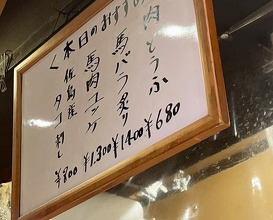 本日のおすすめ
肉どうふ ¥680
馬バラ炙り ¥1400
馬肉ユッケ ¥1,300
佐島産タコ刺し ¥800